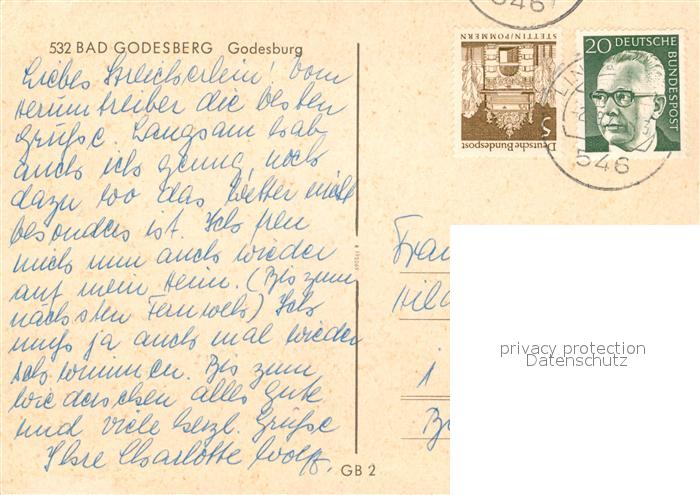 546
532 BAD GODESBERG Godesburg
STETTIN/POMMERN
5
Deutsche Bundespost
20 DEUTSCHE
BUNDESPOST
LIN
546
Liebes! Vom
Herumtreiber die besten
Grüße. Langsam hab
auch ich genug, noch
dazu wo das Wetter nicht
besonders ist. Ich freu
mich nun auch wieder
auf mein Heim. (Bis zum
nächsten Fernweh) Ich
muß ja auch mal wieder
schwimmen. Bis zum
Wiedersehen alles gute
und viele herzl. Grüße
Ihre Charlotte Wolff.
Frau
Hild
1
B
privacy protection
Datenschutz
GB 2